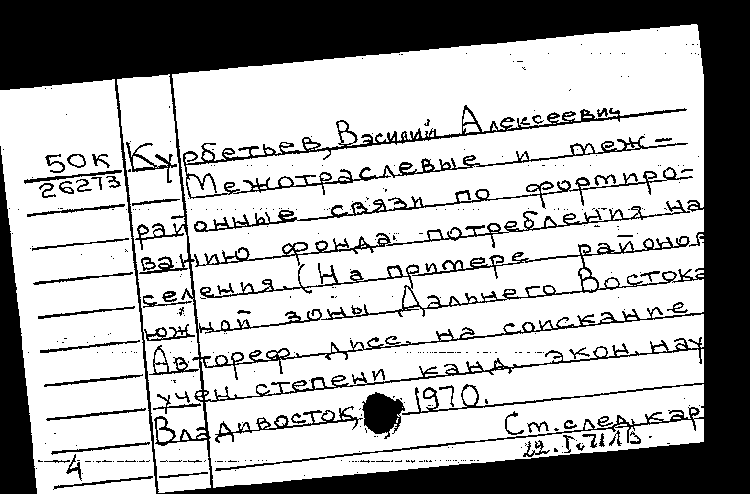 50К
26273
Курбетьев, Василий Алексеевич
Межотраслевые и меж-
районные связи по формиро-
ванию фонда потребления на
селения. (На примере районов
южной зоны Дальнего Востока
Автореф. дисс. на соискание
учен. степени канд. экон. нау
Владивосток, 1970.
См. след. кар
4